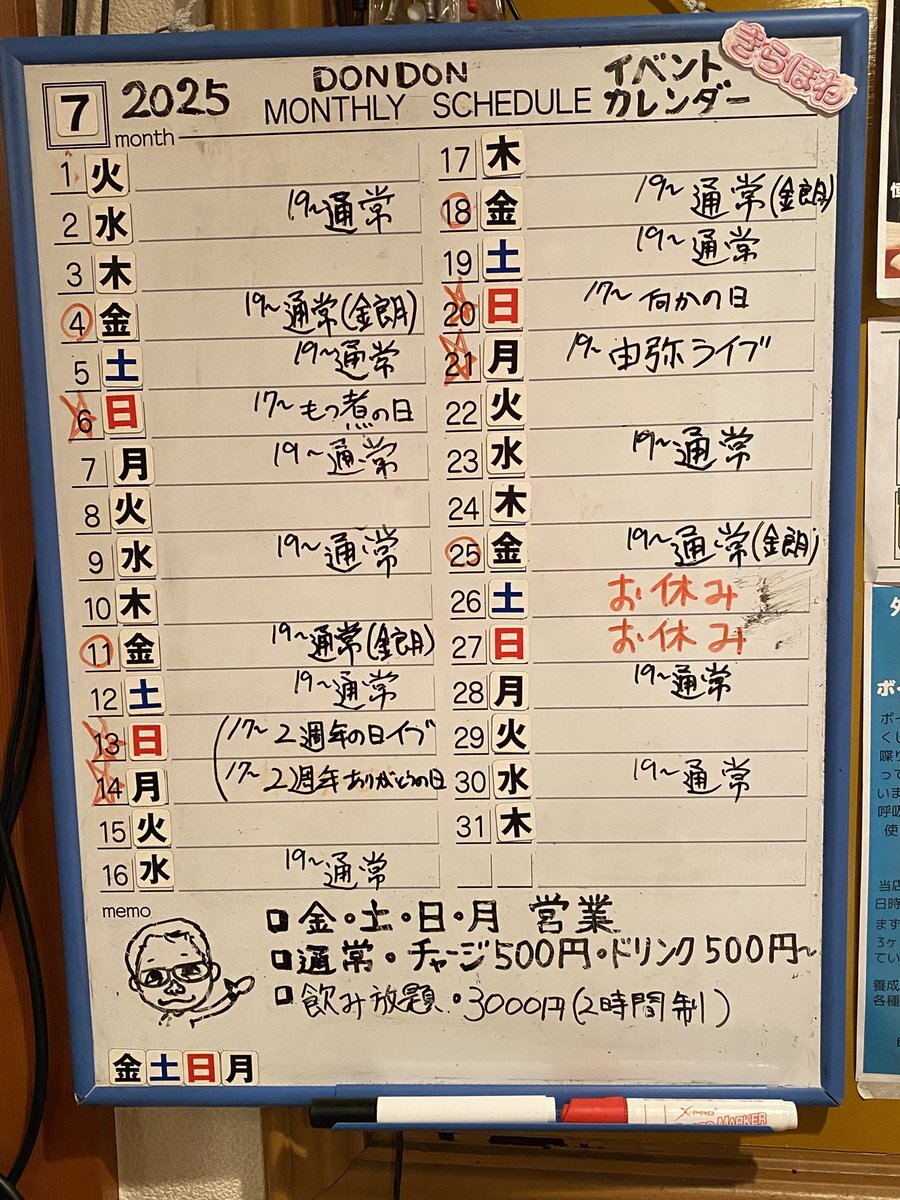 7 month
2025
DONDON
MONTHLY SCHEDULE
イベント
カレンダー
きらほわ
1 火
2 水 19〜通常
3 木
4 金 19〜通常(金朗)
5 土 19〜通常
6 日 17〜もつ煮の日
7 月 19〜通常
8 火
9 水 19〜通常
10 木
11 金 19〜通常(金朗)
12 土 19〜通常
13 日 17〜2週年の日イブ
14 月 17〜2週年ありがとうの日
15 火
16 水 19〜通常
17 木
18 金 19〜通常(金朗)
19 土 19〜通常
20 日 17〜何かの日
21 月 19〜由弥ライブ
22 火
23 水 19〜通常
24 木
25 金 19〜通常(金朗)
26 土 お休み
27 日 お休み
28 月 19〜通常
29 火
30 水 19〜通常
31 木
memo
金・土・日・月 営業
通常・チャージ500円・ドリンク500円〜
飲み放題・3000円(2時間制)
金土日月
X-PRO
MARKER
ボー
くし
喋り
って
いま
呼吸
使
当店
日時
まず
3ヶ
てい
養成
各種